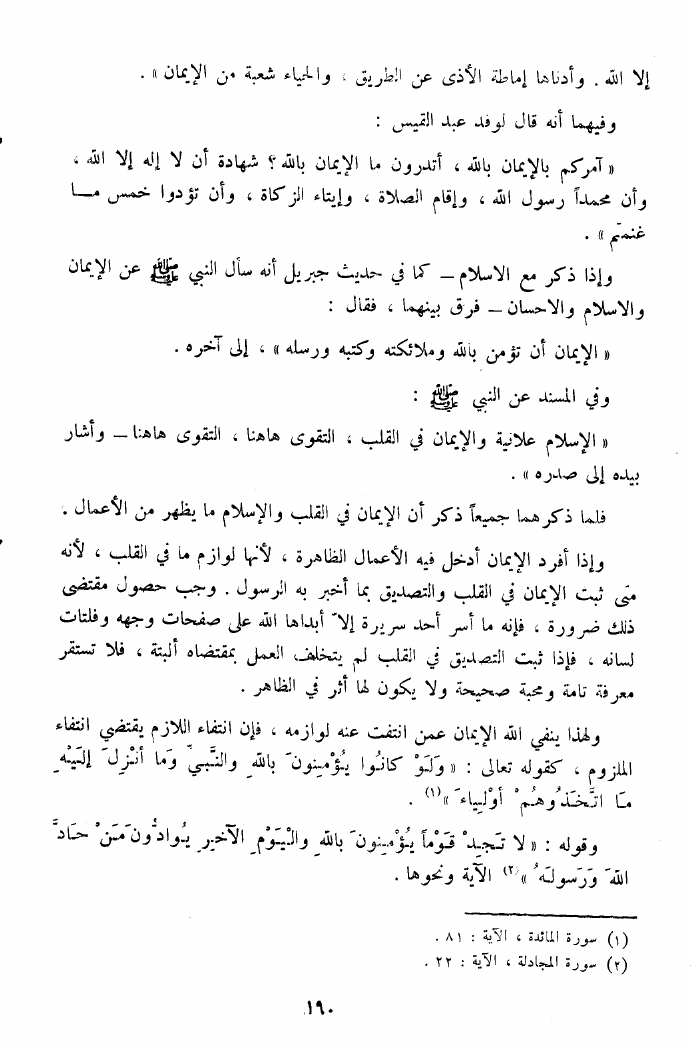 إلا الله . وأدناها إماطة الأذى عن الطريق ، والحياء شعبة من الإيمان » .
وفيهما أنه قال لوفد عبد القيس :
« آمركم بالإيمان بالله ، أتدرون ما الإيمان بالله ؟ شهادة أن لا إله إلا الله ،
وأن محمداً رسول الله ، وإقام الصلاة ، وإيتاء الزكاة ، وأن تؤدوا خمس مــا
غنمتم » .
وإذا ذكر مع الاسلام – كما في حديث جبريل أنه سأل النبي ﷺ عن الإيمان
والاسلام والاحسان – فرق بينهما ، فقال :
« الإيمان أن تؤمن بالله وملائكته وكتبه ورسله » ، إلى آخره .
وفي المسند عن النبي ﷺ :
« الإسلام علانية والإيمان في القلب ، التقوى هاهنا ، التقوى هاهنا – وأشار
بيده إلى صدره » .
فلما ذكرهما جميعاً ذكر أن الإيمان في القلب والإسلام ما يظهر من الأعمال .
وإذا أفرد الإيمان أدخل فيه الأعمال الظاهرة ، لأنها لوازم ما في القلب ، لأنه
متى ثبت الإيمان في القلب والتصديق بما أخبر به الرسول . وجب حصول مقتضى
ذلك ضرورة ، فإنه ما أسر أحد سريرة إلاّ أبداها الله على صفحات وجهه وفلتات
لسانه ، فإذا ثبت التصديق في القلب لم يتخلف العمل بمقتضاه ألبتة ، فلا تستقر
معرفة تامة ومحبة صحيحة ولا يكون لها أثر في الظاهر .
ولهذا ينفي الله الإيمان عمن انتفت عنه لوازمه ، فإن انتفاء اللازم يقتضي انتفاء
الملزوم ، كقوله تعالى : « وَلَوْ كَانُوا يُؤْمِنونَ بَاللهِ والنَّبيِّ وَمَا أُنْزِلَ إلَيْهِ
مَا اتَّخَذُوهُمْ أَوْلِياءَ »(١) .
وقوله : « لا تَجِدْ قَوْماً يُؤْمِنونَ بَاللهِ والْيَوْمِ الآخِرِ يُوادُّونَ مَنْ حَادَّ
اللهَ وَرَسولَهُ »(٢) الآية ونحوها .
(١) سورة المائدة ، الآية : ٨١ .
(٢) سورة المجادلة ، الآية : ٢٢ .
١٩٠